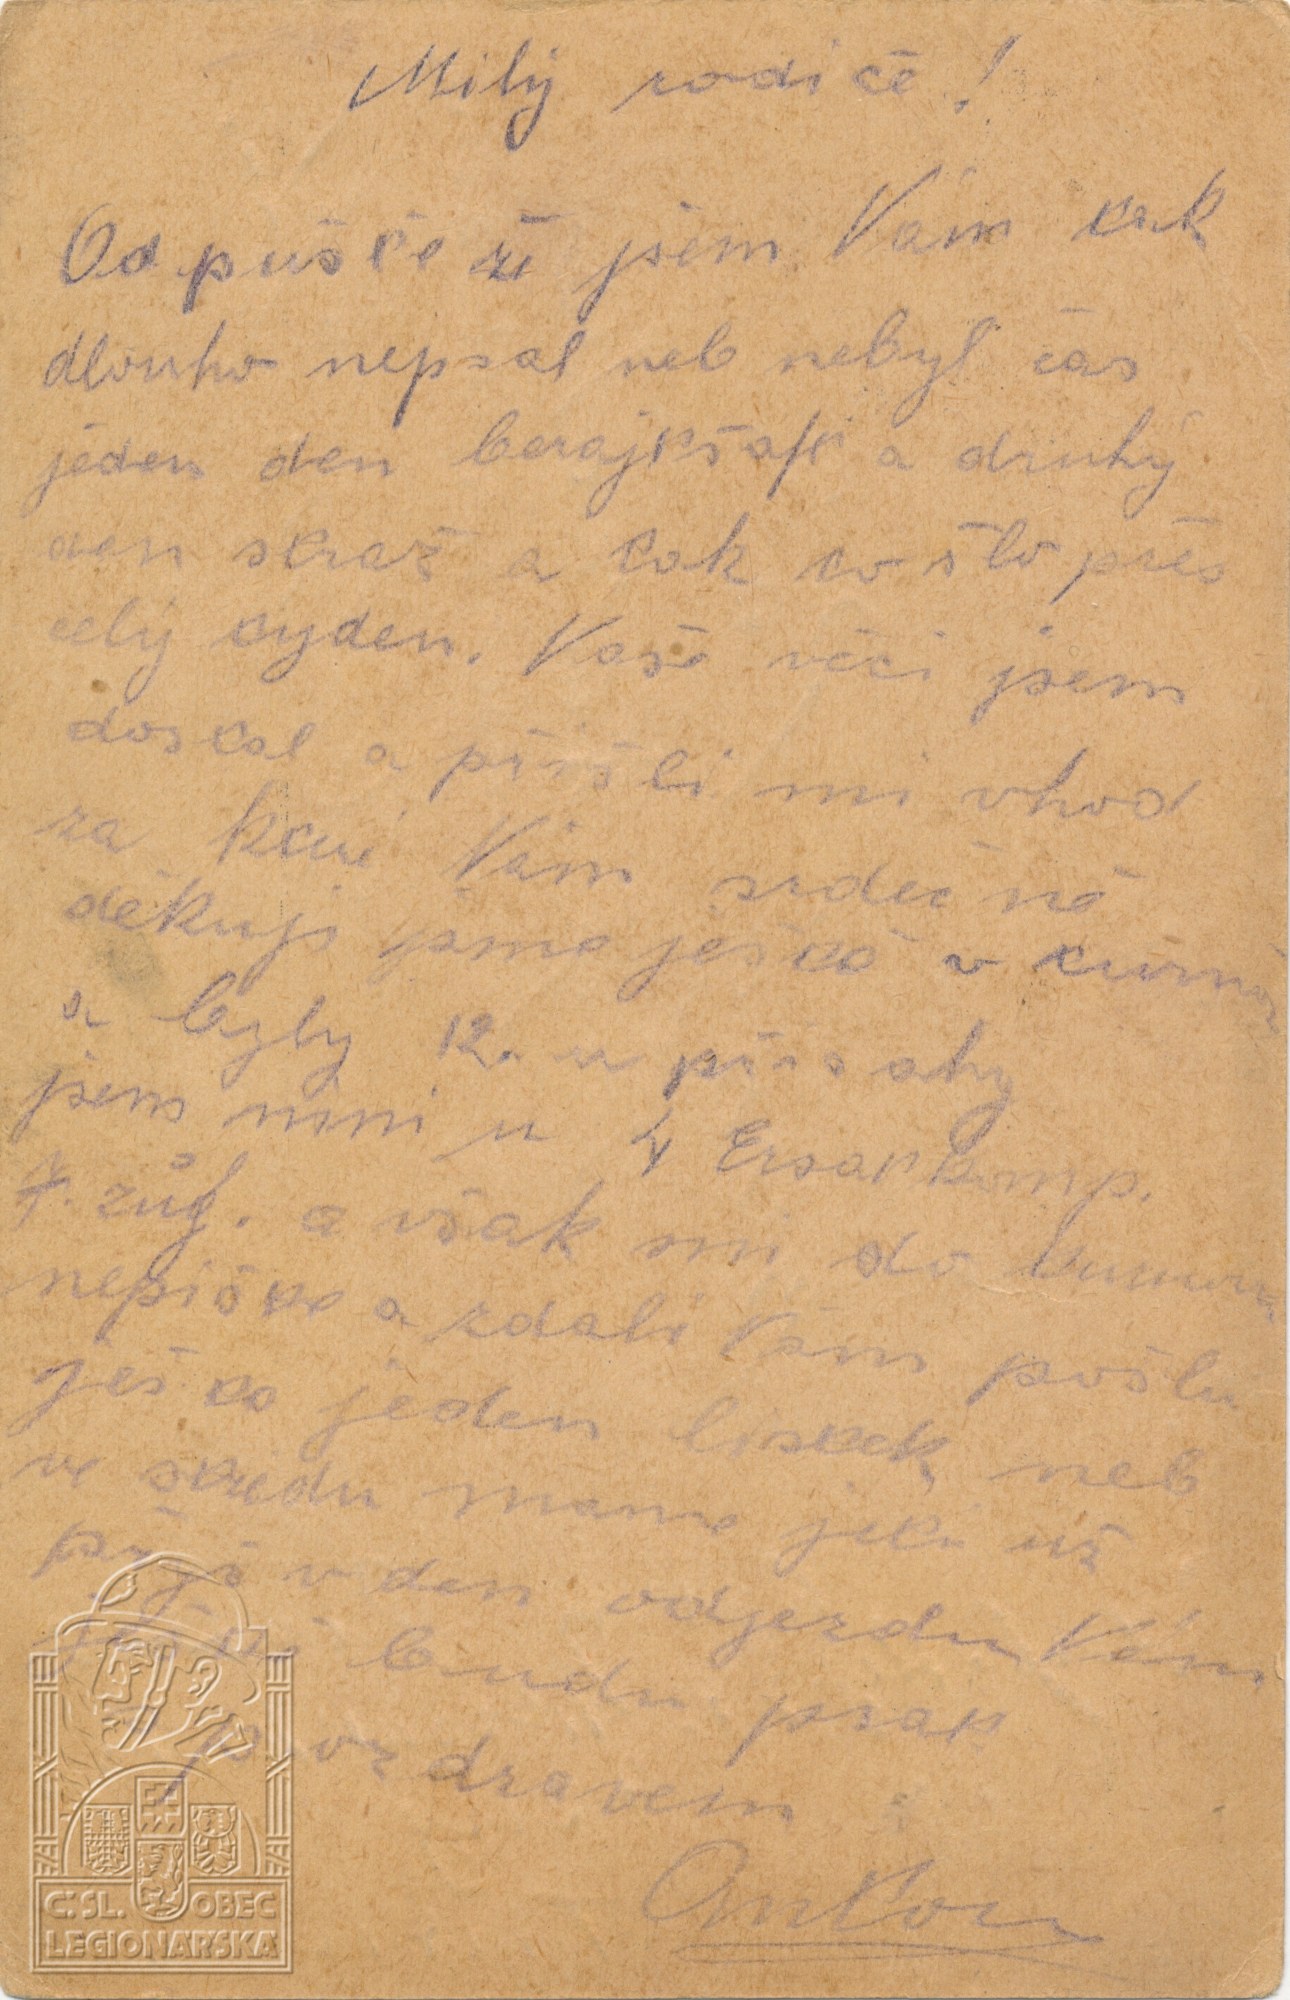 Milý rodiče!
Odpusťte že jsem Vám tak
dlouho nepsal neb nebyl čas
jeden den berajtšaft a druhý
den stráž a tak to šlo přes
celý tyden. Vaše věci jsem
dostal a přišli mi vhod
za kteri Vám srdečně
děkuji jsme ještě v
a byly 12. u přísahy
jsem nini u 4 Ersatzkomp.
7. zúg. a však mi do
nepište a zdali Vám pošlu
ještě jeden listek neb
ve středu mame jeti už
v den odjezdu Vám
budu psat
pozdravem
Anton
Č.SL. OBEC
LEGIONÁŘSKÁ